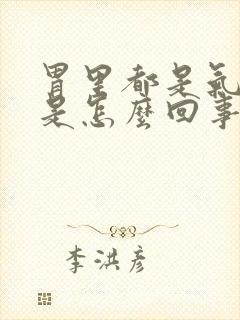 胃里都是氣
是怎麼回事
李洪彦